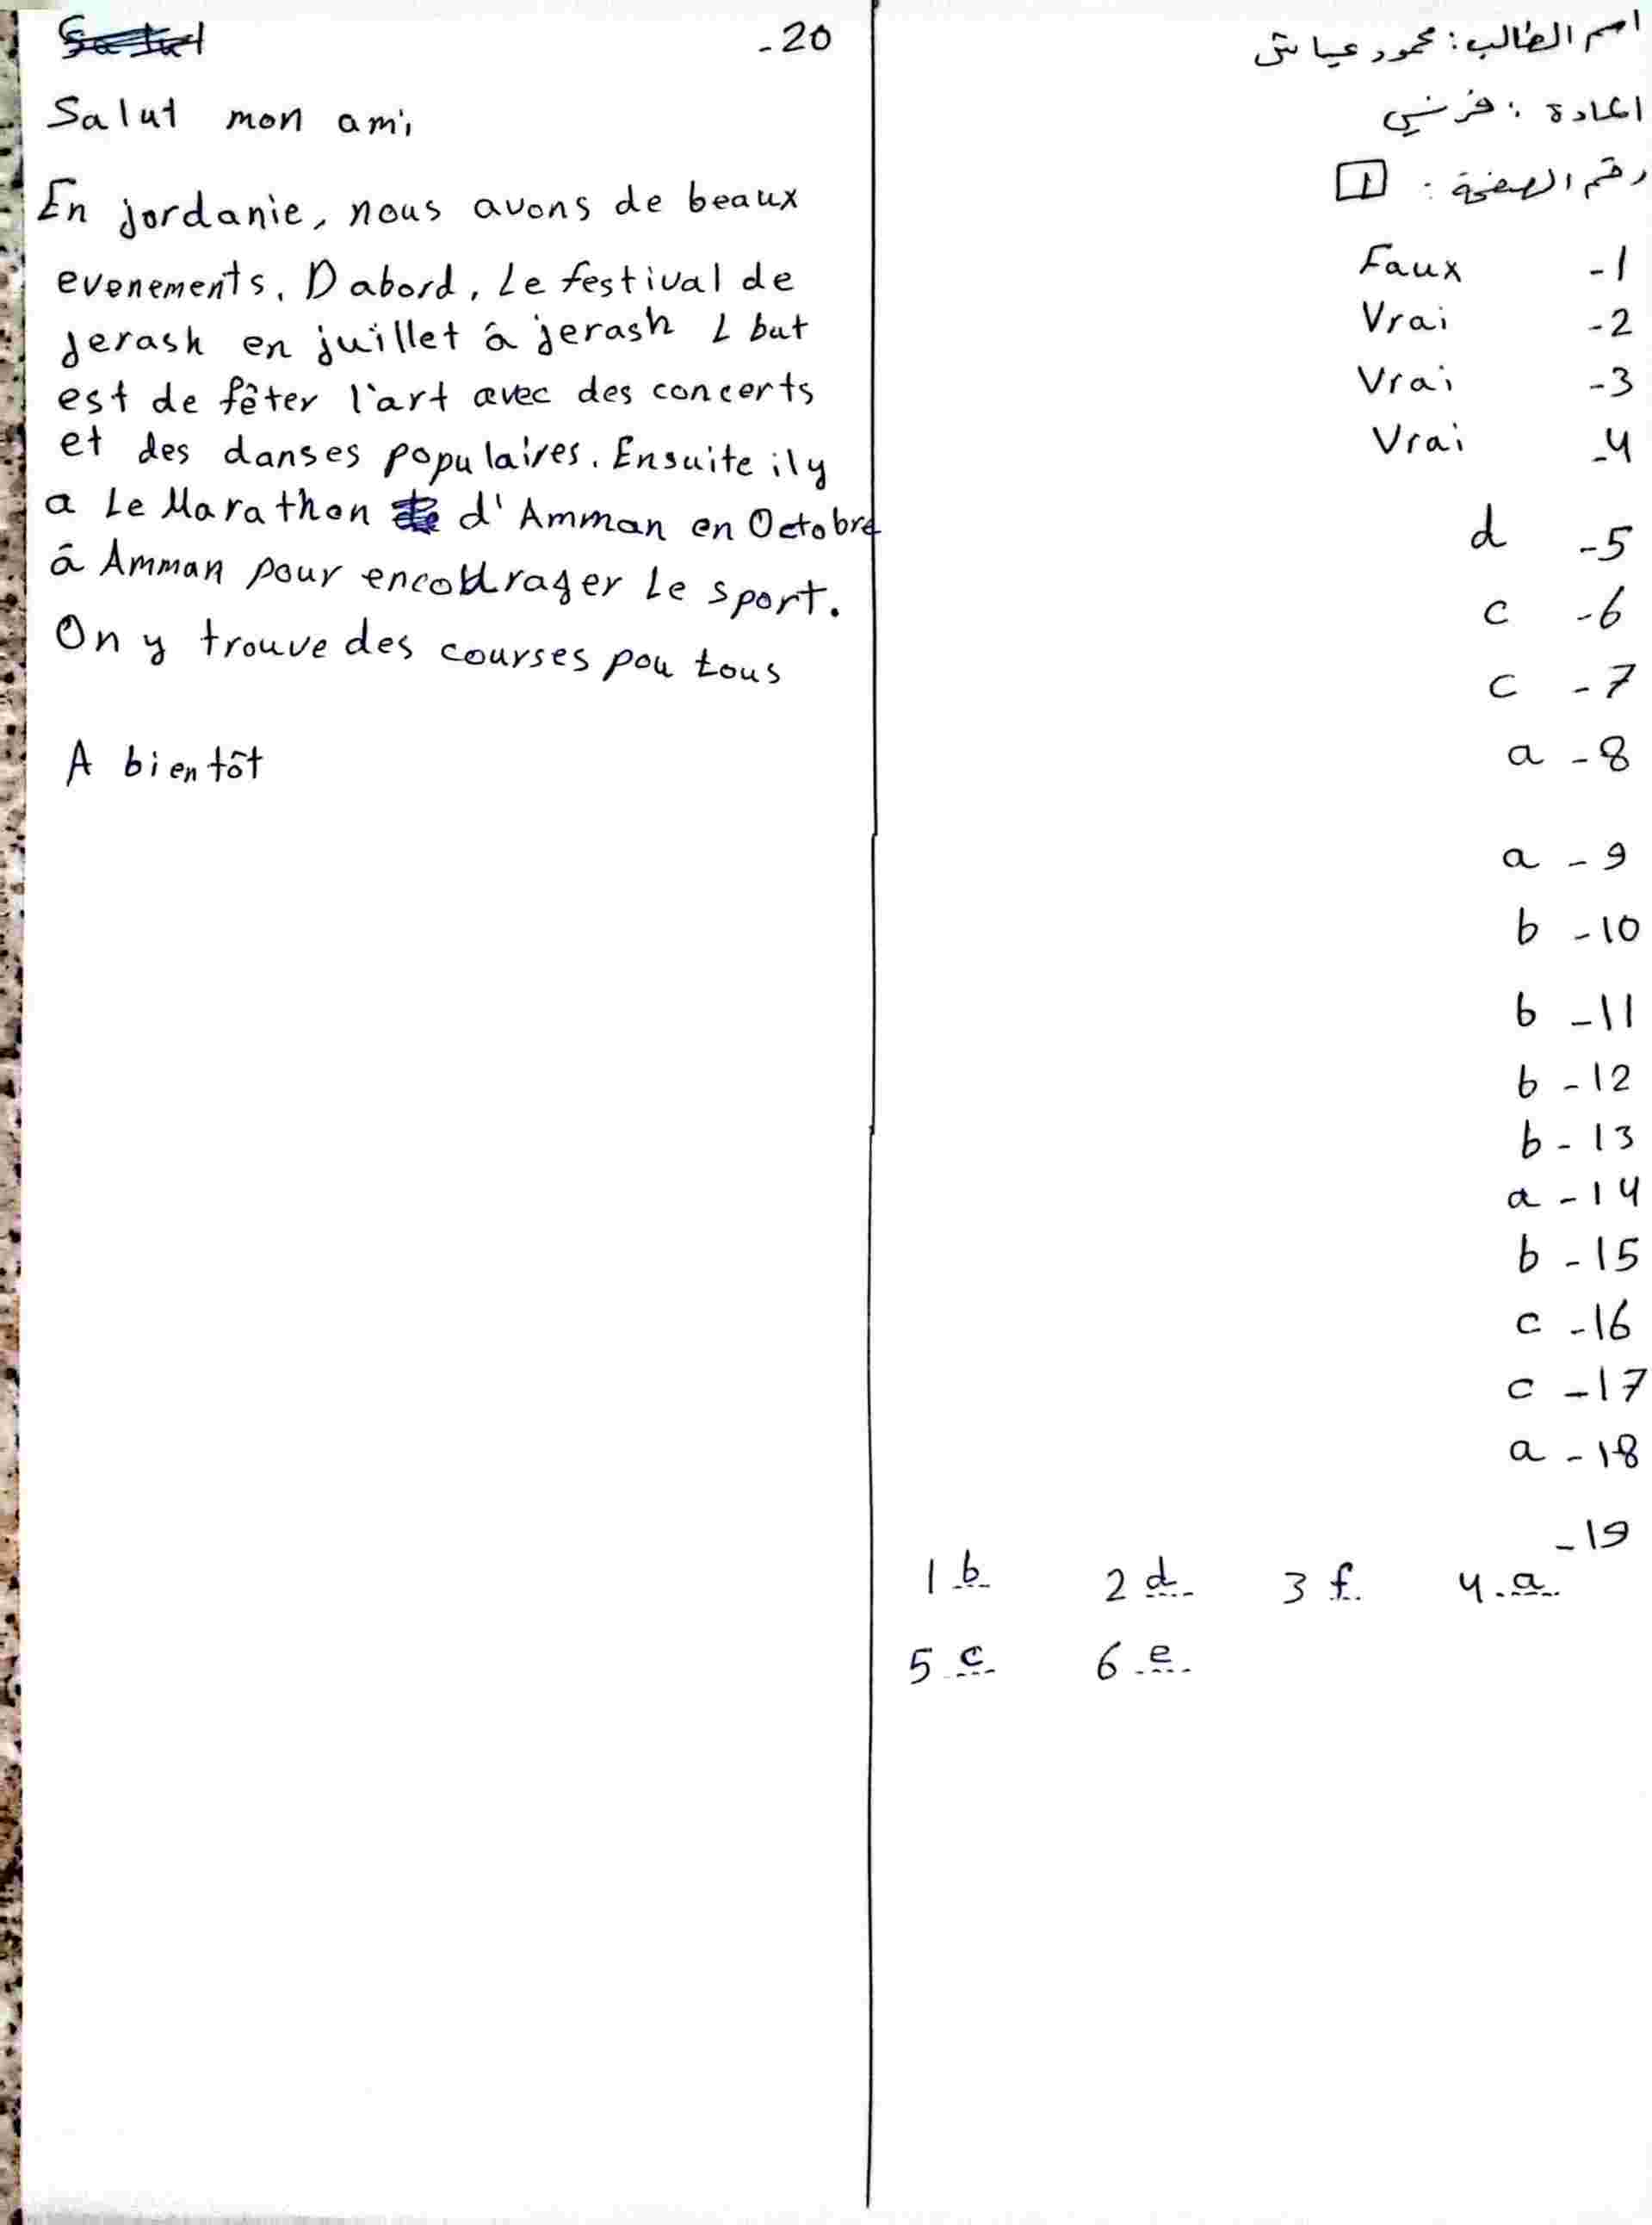 اسم الطالب: محمود عياش
المادة: فرنسي
رقم الصفحة: 1
Faux -1
Vrai -2
Vrai -3
Vrai -4
d -5
c -6
c -7
a -8
a -9
b -10
b -11
b -12
b -13
a -14
b -15
c -16
c -17
a -18
-19
1 b 2 d 3 f 4 a
5 c 6 e
-20
Salut mon ami
En jordanie, nous avons de beaux
evenements. D abord, Le festival de
jerash en juillet â jerash L but
est de fêter l'art avec des concerts
et des danses populaires. Ensuite il y
a Le Marathon d'Amman en Octobre
â Amman pour encourager Le sport.
On y trouve des courses pou tous
A bientôt